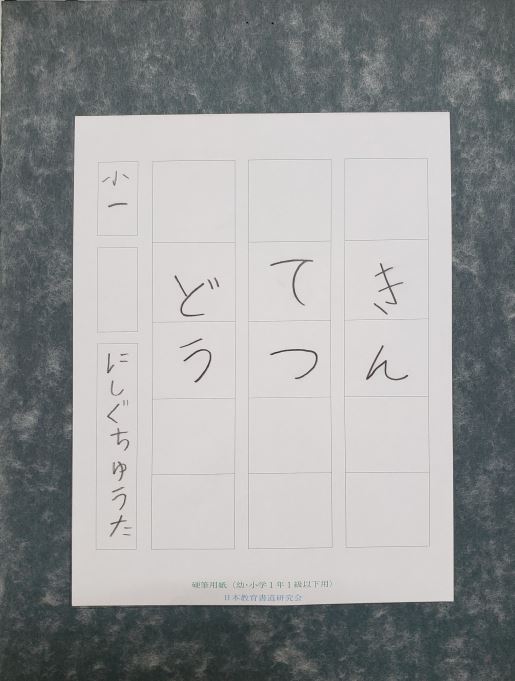 きん
てつ
どう
小一
にしぐちゅうた
硬筆用紙（幼・小学1年1級以下用）
日本教育書道研究会